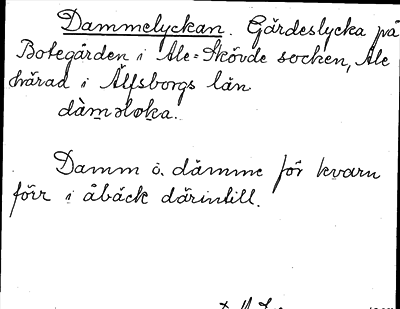 Dammelyckan. Gärdeslycka på
Botegården i Ale-Skövde socken, Ale
härad i Älfsborgs län
Damm o. dämme för kvarn
förr i åbäck därintill.